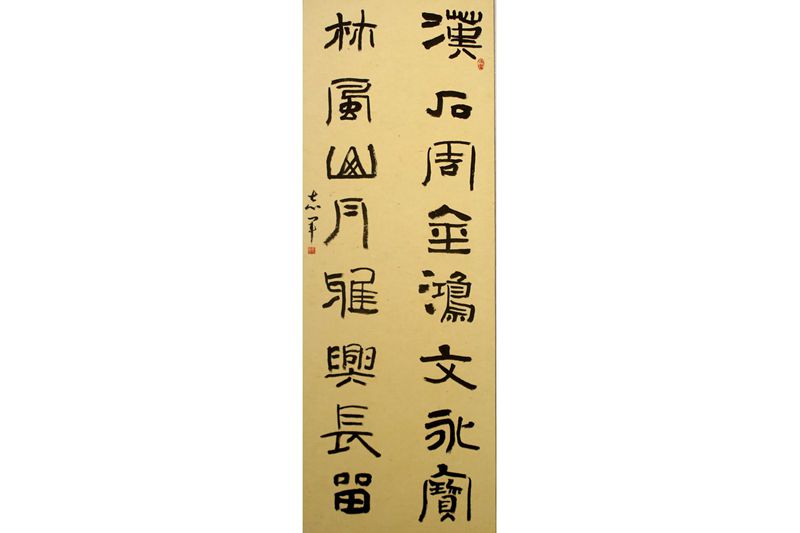 漢石周金鴻文永寶
林風山月雅興長留
志軍